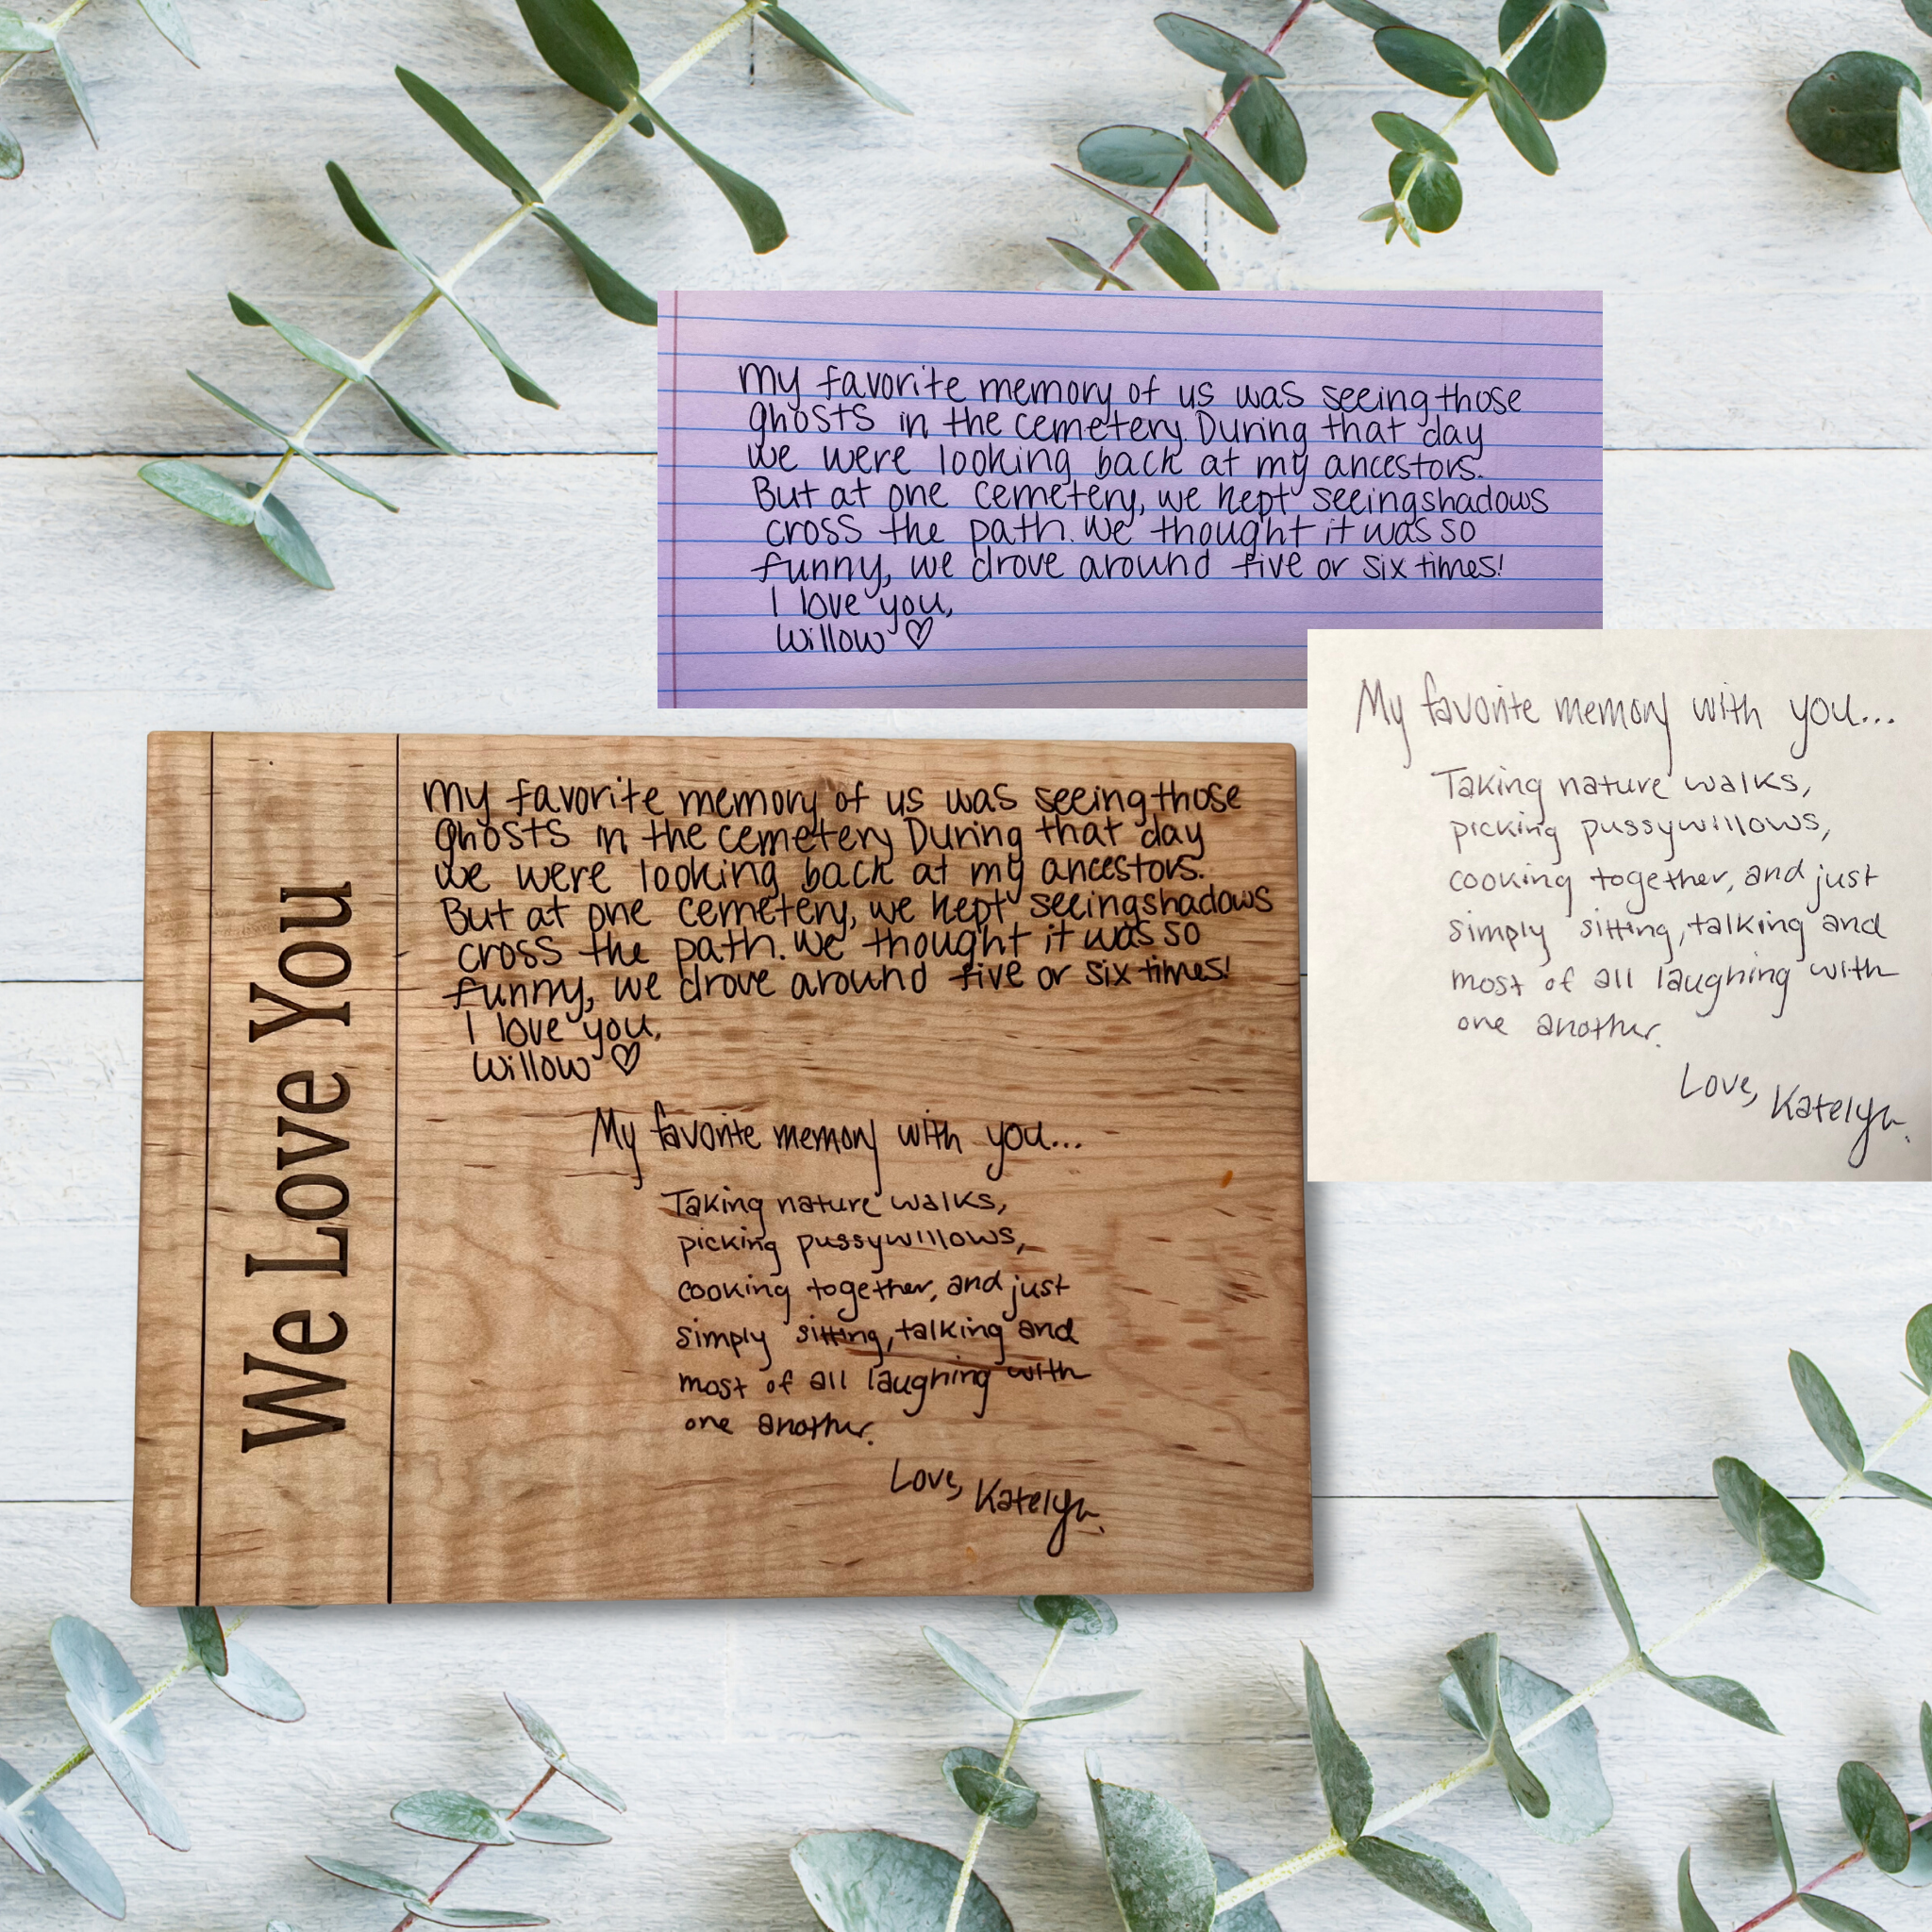 My favorite memory of us was seeing those
ghosts in the cemetery. During that day
we were looking back at my ancestors.
But at one cemetery, we kept seeing shadows
cross the path. We thought it was so
funny, we drove around five or six times!
I love you,
Willow ♡
My favorite memory with you...
Taking nature walks,
picking pussywillows,
cooking together, and just
simply sitting, talking and
most of all laughing with
one another.
Love, Katelyn.
We Love You
My favorite memory of us was seeing those
ghosts in the cemetery During that day
we were looking back at my ancestors.
But at one cemetery, we kept seeing shadows
cross the path. We thought it was so
funny, we drove around five or six times!
I love you,
Willow ♡
My favorite memory with you...
Taking nature walks,
picking pussywillows,
cooking together, and just
simply sitting, talking and
most of all laughing with
one another.
Love, Katelyn.